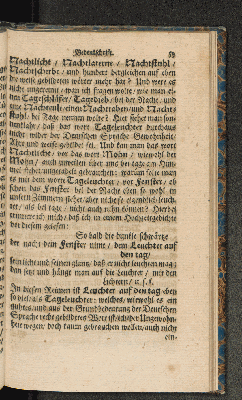 Bedenkschrift. 59
Nachtlicht / Nachtlaterne / Nachtstuhl /
Nachtscherbe / und hundert dergleichen auf eben
die weise gebildeten wörter mehr hat? Und were es
nicht ungereimt / wan ich fragen wolte / wie man ei-
nen Tageschläffer / Tagedieb / bei der Nacht / und
eine Nachteule / einen Nachtraben / und Nacht-
stuhl / bei Tage nennen wolte? Hier siehet man son-
nenklahr / daß das wort Tageleuchter durchaus
nicht wider der Deutschen Sprache Gewohnheit
Ahrt und weise gebildet sei. Und kan man das wort
Nachtlicht / wie das wort Mohn / wiewohl der
Mohn / auch zuweilen über uns bei tage am Him-
mel stehet ungetadelt gebrauchen: warum solte man
es mit dem worte Tageleuchter / vor Fenster / ob
schon das Fenster bei der Nacht eben so wohl in
unsern Zimmern stehet / aber nicht so eigendlich leuch-
tet / als bei tage / nicht auch tuhn können? Hierbei
erinnere ich mich / daß ich in einem Hochzeitgedichte
der diesem gelesen:
So bald die dunkle schwärtze
der nacht dem Fenster nimt / dem Leuchter auf
den tag /
sein licht und seinen glantz / daß er nicht leuchten mag;
dan setzt und hänget man auf die Leuchter / mit den
Lichtern / u. s. f.
In diesen Reimen ist Leuchter auf den tag eben
so viel / als Tageleuchter: welches / wiewohl es ein
guhtes / und aus der Grundbedeutung der Deutschen
Sprache recht gebildetes Wort ist / ich der Ungewohn-
heit wegen / doch kaum gebrauchen wollen / auch nicht
ein-